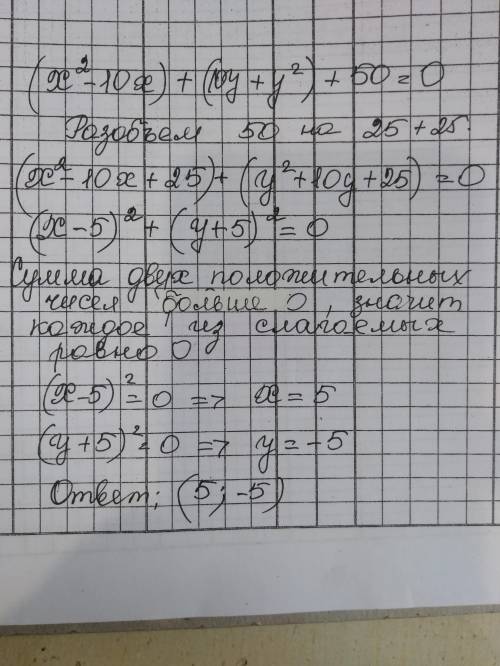 (x²-10x) + (10y + y²) + 50 = 0
Разобъем 50 на 25+25.
(x²-10x+25) + (y²+10y+25) = 0
(x-5)² + (y+5)² = 0
Сумма двух положительных
чисел больше 0, значит
каждое из слагаемых
равно 0
(x-5)² = 0 => x = 5
(y+5)² = 0 => y = -5
Ответ: (5; -5)